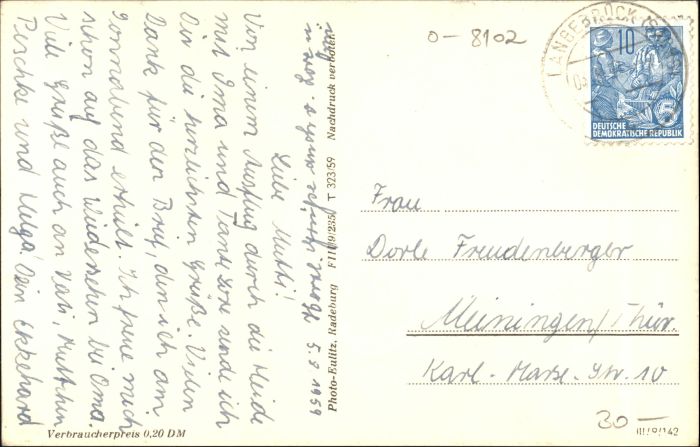 Liebe Mutti!
Von einem Ausflug durch die Heide
mit Oma und Tante Lore sende ich
Dir die herzlichsten Grüße. Vielen
Dank für den Brief, den ich am
Sonnabend erhielt. Ich freue mich
schon auf das Wiedersehen bei Oma.
Viele Grüße auch an Vati, Mutti
Peschke und Helga! Dein Ekkehard
5.8.1959
Verbraucherpreis 0,20 DM
Photo-Eulitz, Radeburg F III/9/235/ T 323/59 Nachdruck verboten
0-8102
LANGEBRÜCK
10
5
DEUTSCHE
DEMOKRATISCHE REPUBLIK
Frau
Dorle Freudenberger
Meiningen/Thür.
Karl-Marx-Str. 10
30-
III/9/142